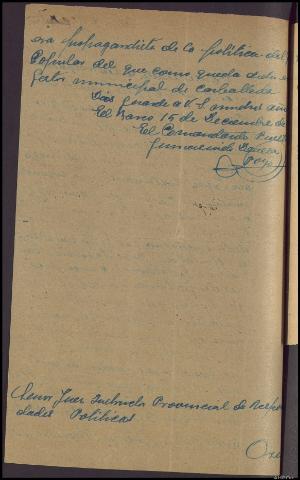 era propagandista de la politica del
Popular del que como queda dicho
municipal de Carballeda
Dios guarde a V. S. muchos años
El Barco 15 de Diciembre de
El Comandante
Gumersindo
Señor Juez Instructor Provincial de Respo
Politicas
Ore